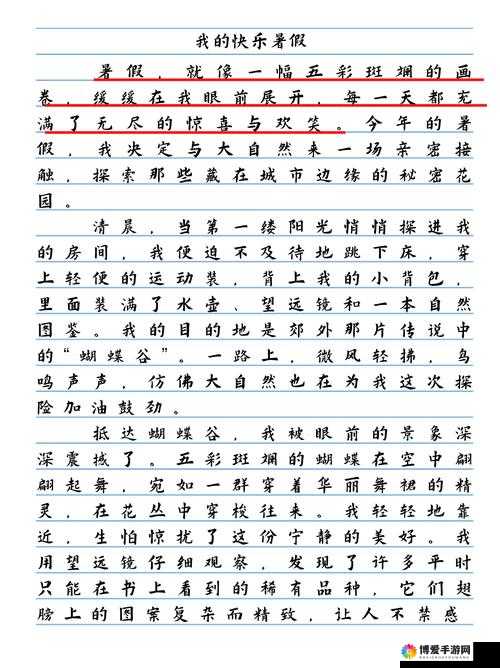 我的快乐暑假
暑假，就像一幅五彩斑斓的画
卷，缓缓在我眼前展开，每一天都充
满了无尽的惊喜与欢笑。今年的暑
假，我决定与大自然来一场亲密接
触，探索那些藏在城市边缘的秘密花
园。
清晨，当第一缕阳光悄悄探进我
的房间，我便迫不及待地跳下床，穿
上轻便的运动装，背上我的小背包，
里面装满了水壶、望远镜和一本自然
图鉴。我的目的地是郊外那片传说中
的“蝴蝶谷”。一路上，微风轻拂，鸟
鸣声声，仿佛大自然也在为我这次探
险加油鼓劲。
抵达蝴蝶谷，我被眼前的景象深
深震撼了。五彩斑斓的蝴蝶在空中翩
翩起舞，宛如一群穿着华丽舞裙的精
灵，在花丛中穿梭往来。我轻轻地靠
近，生怕惊扰了这份宁静的美好。我
用望远镜仔细观察，发现了许多平时
只能在书上看到的稀有品种，它们翅
膀上的图案复杂而精致，让人不禁感
博爱手游网